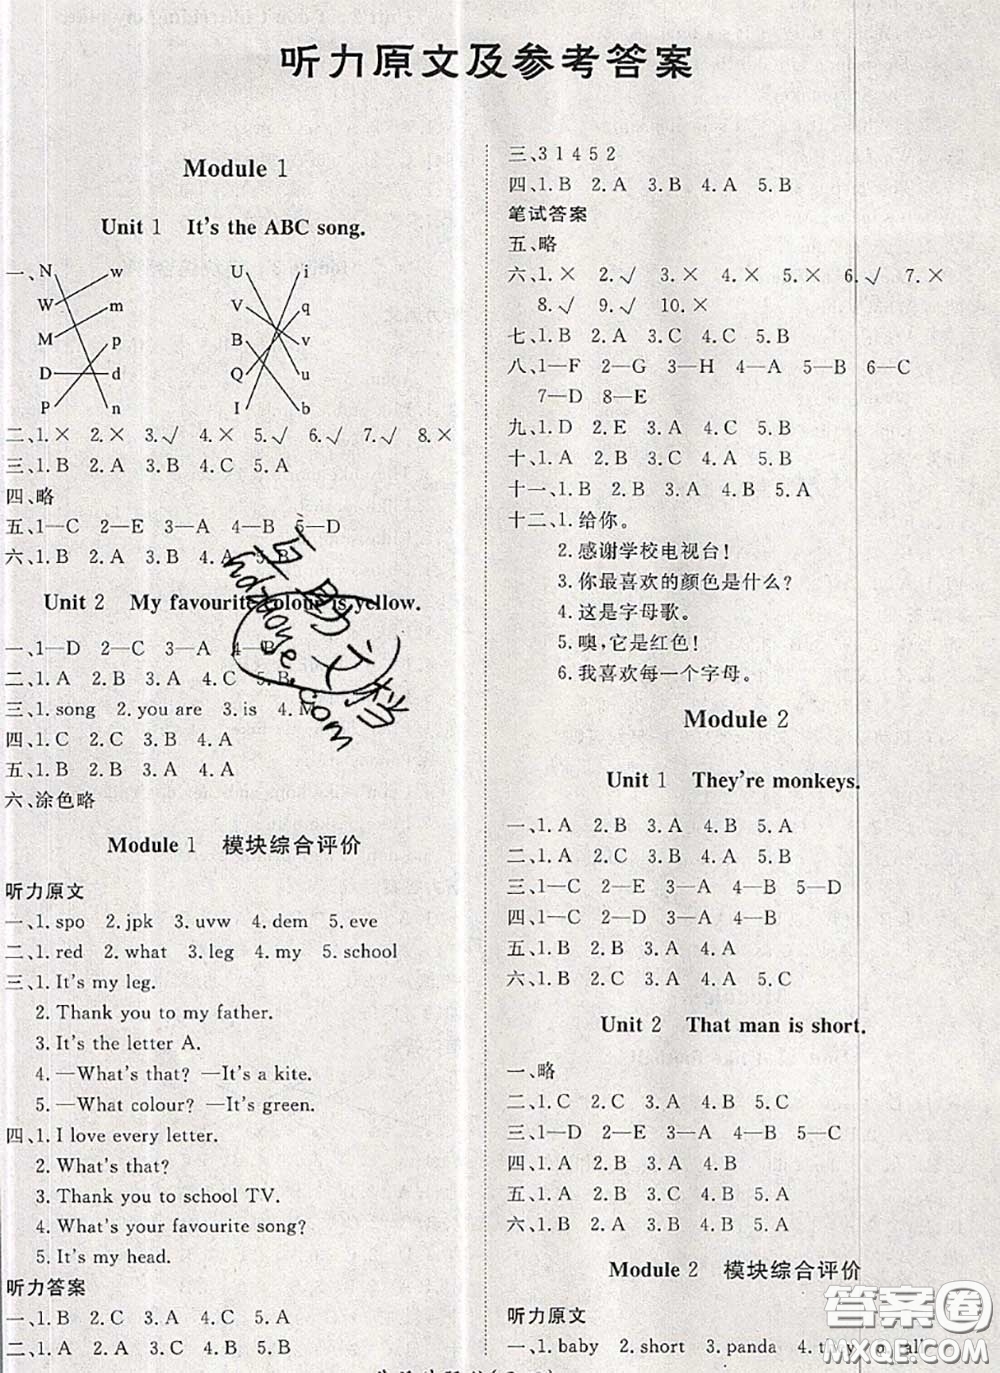 听力原文及参考答案
Module 1
Unit 1 It's the ABC song.
一、N w U i
W m V q
M p B v
D d Q u
P n I b
二、1.× 2.× 3.√ 4.× 5.√ 6.√ 7.√ 8.×
三、1.B 2.A 3.B 4.C 5.A
四、略
五、1—C 2—E 3—A 4—B 5—D
六、1.B 2.A 3.B 4.A 5.B
Unit 2 My favourite colour is yellow.
一、1—D 2—C 3—A 4—B
二、1.A 2.B 3.A 4.C 5.B
三、1.song 2.you are 3.is 4.M
四、1.C 2.C 3.B 4.A
五、1.B 2.A 3.B 4.A
六、涂色略
Module 1 模块综合评价
听力原文
一、1.spo 2.jpk 3.uvw 4.dem 5.eve
二、1.red 2.what 3.leg 4.my 5.school
三、1.It's my leg.
2.Thank you to my father.
3.It's the letter A.
4.—What's that? —It's a kite.
5.—What colour? —It's green.
四、1.I love every letter.
2.What's that?
3.Thank you to school TV.
4.What's your favourite song?
5.It's my head.
听力答案
一、1.B 2.C 3.A 4.C 5.B
二、1.A 2.C 3.A 4.B 5.A
三、3 1 4 5 2
四、1.B 2.A 3.B 4.A 5.B
笔试答案
五、略
六、1.× 2.√ 3.× 4.× 5.× 6.√ 7.×
8.√ 9.√ 10.×
七、1.B 2.A 3.C 4.C 5.B
八、1—F 2—G 3—H 4—A 5—B 6—C
7—D 8—E
九、1.D 2.E 3.A 4.B 5.C
十、1.A 2.B 3.B 4.A 5.B
十一、1.B 2.B 3.A 4.B 5.A
十二、1.给你。
2.感谢学校电视台!
3.你最喜欢的颜色是什么?
4.这是字母歌。
5.噢,它是红色!
6.我喜欢每一个字母。
Module 2
Unit 1 They're monkeys.
一、1.A 2.B 3.A 4.B 5.A
二、1.A 2.B 3.A 4.B 5.A
三、1—C 2—E 3—A 4—B 5—D
四、1—C 2—D 3—A 4—B
五、1.B 2.B 3.A 4.A 5.B
六、1.B 2.C 3.A 4.A 5.C
Unit 2 That man is short.
一、略
二、1.C 2.C 3.A 4.B 5.A
三、1—D 2—E 3—A 4—B 5—C
四、1.A 2.B 3.A 4.B
五、1.A 2.B 3.A 4.B 5.A
六、1.B 2.A 3.B 4.A 5.B
Module 2 模块综合评价
听力原文
一、1.baby 2.short 3.panda 4. 5.all
互助文档
hdzuoye.com
答案圈
MXQE.COM